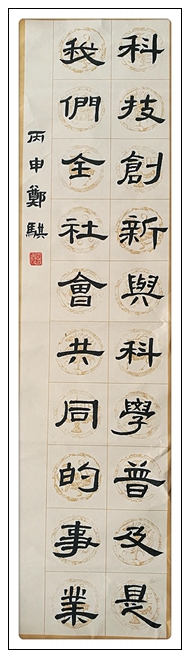 科技創新與科學普及是
我們全社會共同的事業
丙申鄭騏